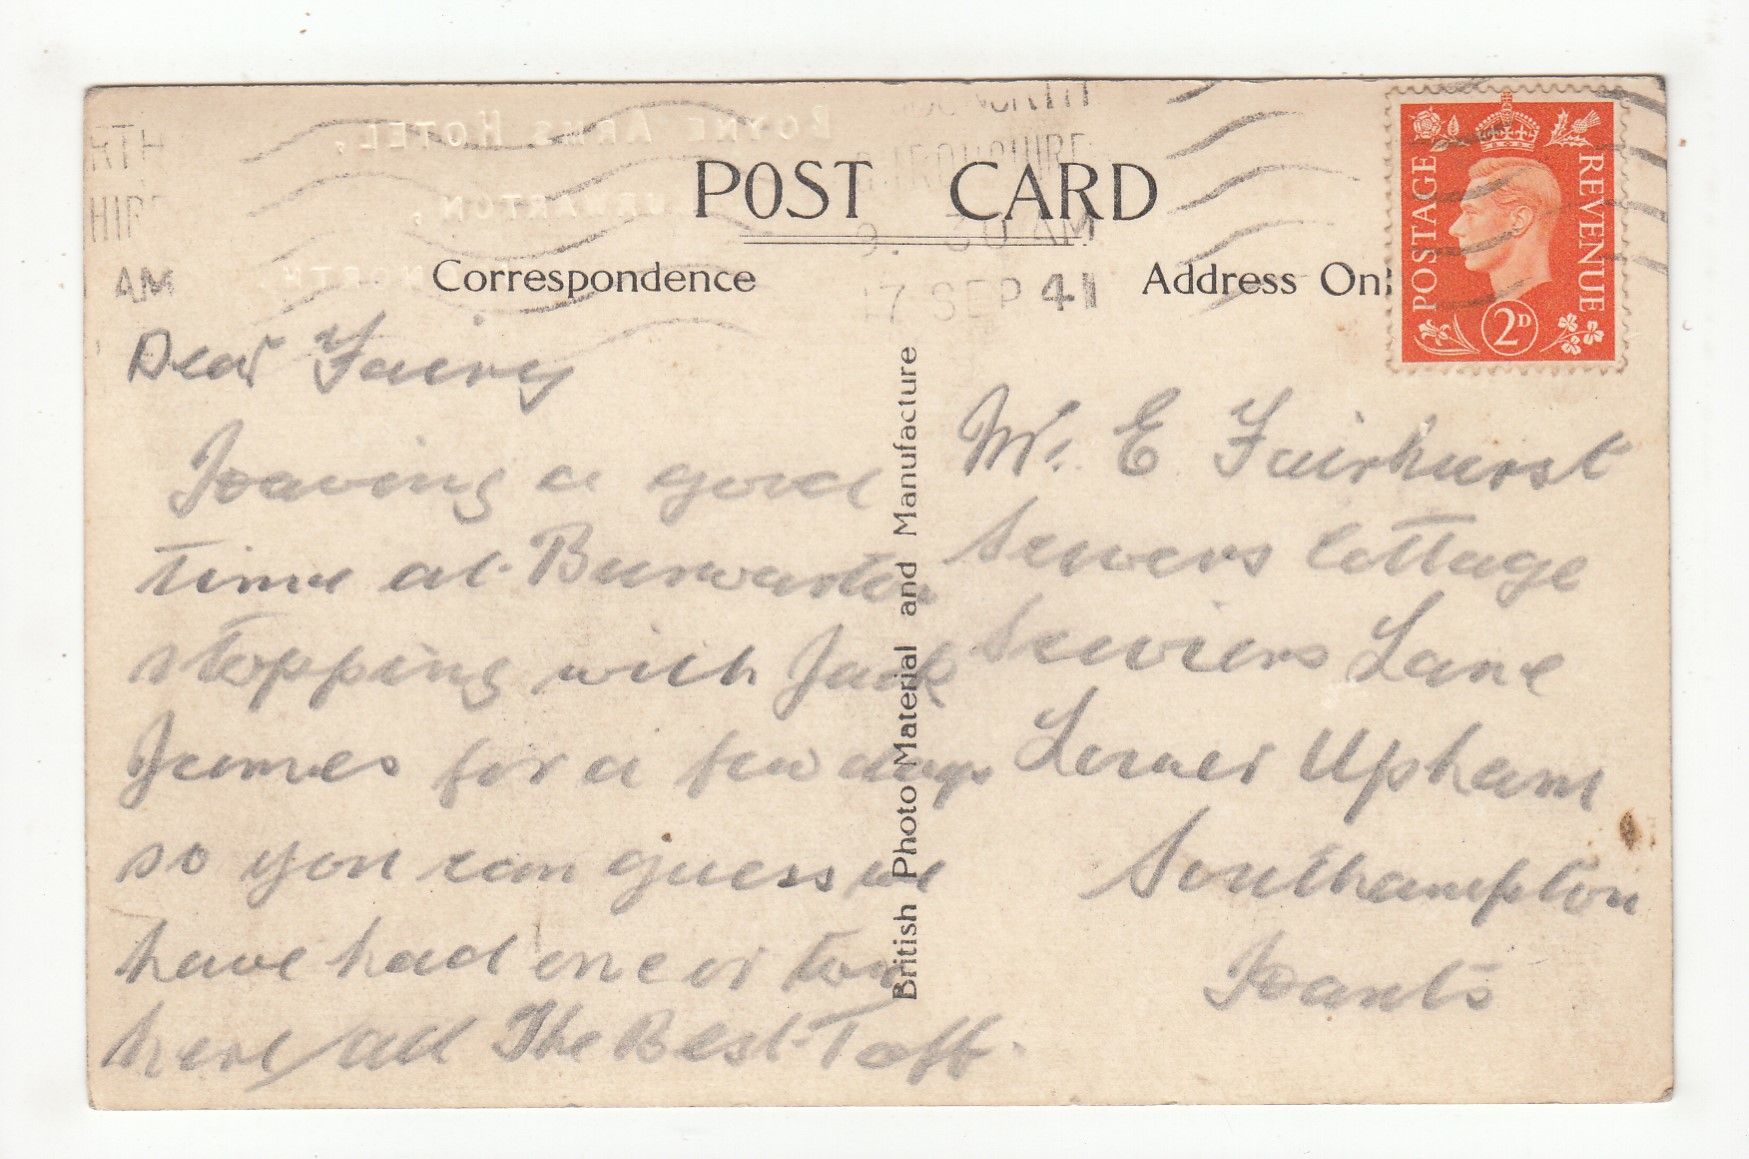 BOYNE ARMS HOTEL,
BURWARTON,
POST CARD
Correspondence
Address Onl
9. 30 AM
17 SEP 41
AM
POSTAGE
REVENUE
2D
British Photo Material and Manufacture
Dear Fairy
Having a good
time at Burwarton
stopping with Jack
James for a few days
so you can guess we
have had one or two
here, all The Best Taff.
Mr. E Fairhurst
Sewers Cottage
Sewiers Lane
Lower Upham
Southampton
Hants